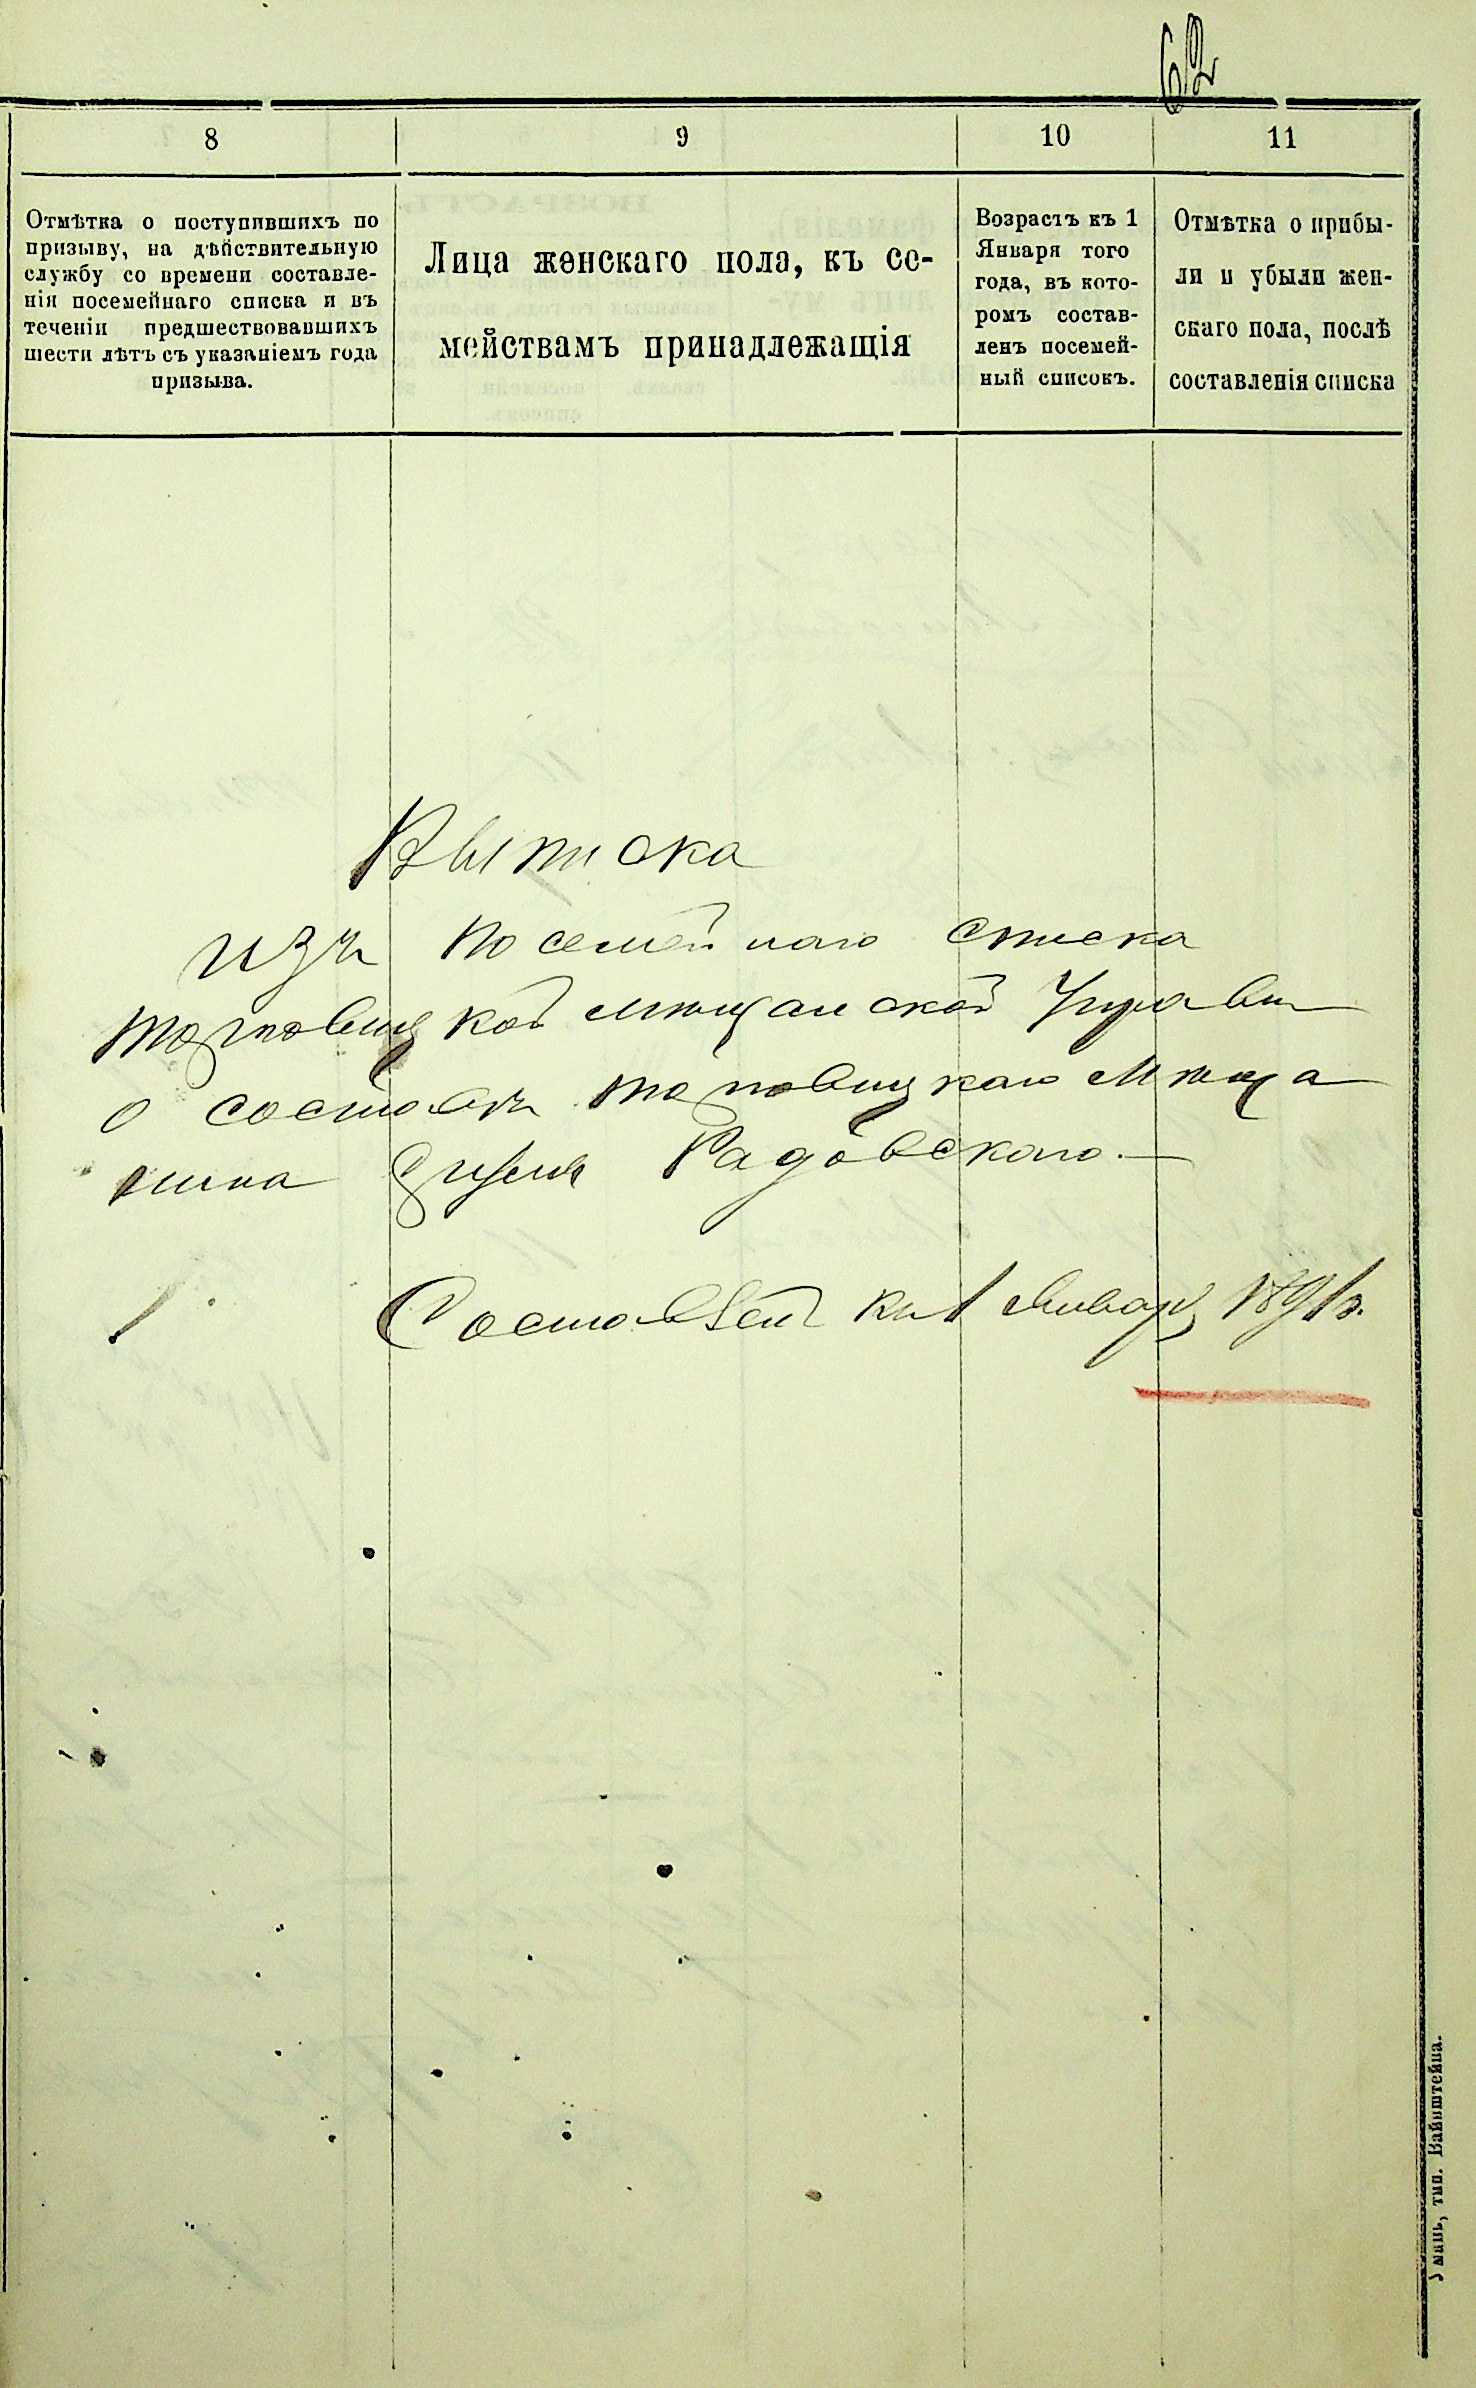 62
8 9 10 11
Отмѣтка о поступившихъ по
призыву, на дѣйствительную
службу со времени составле-
нія посемейнаго списка и въ
теченіи предшествовавшихъ
шести лѣтъ съ указаніемъ года
призыва.
Лица женскаго пола, къ се-
мействамъ принадлежащія
Возрастъ къ 1
Января того
года, въ кото-
ромъ состав-
ленъ посемей-
ный списокъ.
Отмѣтка о прибы-
ли и убыли жен-
скаго пола, послѣ
составленія списка
Выписка
изъ посемейнаго списка
Торговицкой мѣщанской Управы
о составѣ Торговицкаго мѣща
нина Радовскаго.
Составленъ къ 1 Января 1891 г.
Умань, тип. Вайнштейна.